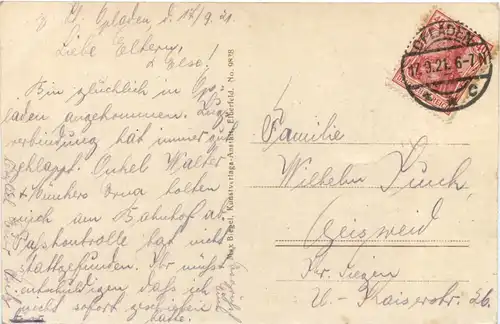 Opladen d. 17/9. 21.
Liebe Eltern,
Bin glücklich in Op-
laden angekommen. Zug-
verbindung hat immer gut
geklappt. Onkel Walter
holten
mich am Bahnhof ab.
Passkontrolle hat nicht
stattgefunden. Ihr müßt
entschuldigen daß ich
nicht sofort geschrieben
habe.
Max Biegel, Kunstverlags-Anstalt, Elberfeld. No. 9838
OPLADEN
17.9.21. 6-7 N
* * C
Familie
Wilhelm
Geisweid
Kr. Siegen
U. Kaiserstr. 26.